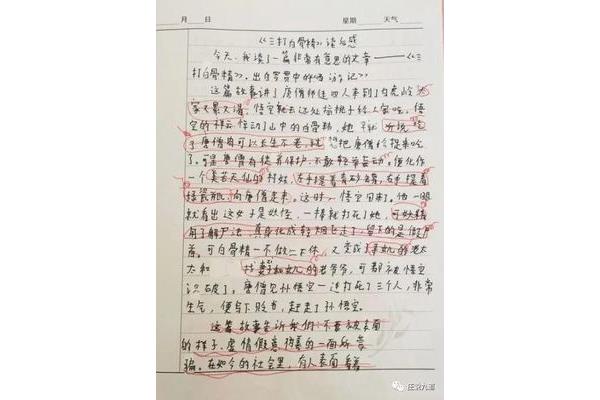 月 日 星期 天气
《三打白骨精》读后感
今天,我读了一篇非常有意思的文章——《三
打白骨精》,出自罗贯中的《西游记》
这篇故事讲了唐僧师徒四人来到了白虎岭,
家又累又渴,悟空就去远处摘桃子给人家吃,悟
空的 惊动了山中的白骨精,她 听说吃
了唐僧肉可以长生不老,就想把唐僧给捉来吃
了。可是唐僧有徒弟保护,不敢轻举妄动。便化作
一个美若天仙的村姑,左手提着青砂罐,右手提着
绿瓷瓶,向唐僧走来。这时,悟空回来了。他一眼
就看出这女子是妖怪,一棒就打死了她,可妖精
用了解尸法,真身化成轻烟飞走了,留下的是假尸
首。可白骨精一不做二不休,又变成了 的老太
太和 找妻子和女儿的老爷爷,可都被悟空
识破了。唐僧见孙悟空一连打死了三个人,非常
生气,便写下贬书,赶走了孙悟空。
这篇故事告诉我们:不要被表面
的样子、虚情假意 的一面所蒙
骗。在如今的社会里,有人表面看着
庄栄九郡